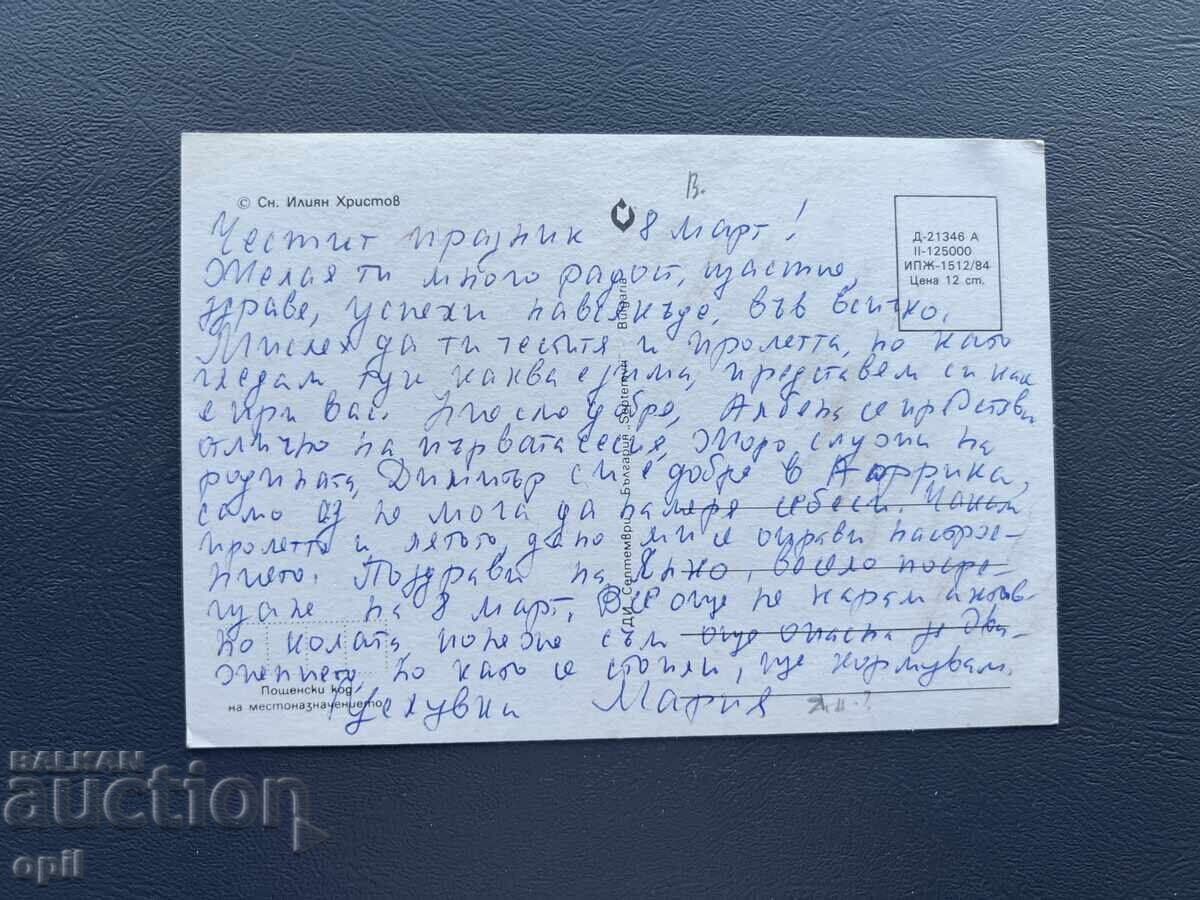 © Сн. Илиян Христов
В.
Д-21346 А
II-125000
ИПЖ-1512/84
Цена 12 ст.
Честит празник 8 март!
Желая ти много радост, щастие,
здраве, успехи навсякъде, във всичко.
Мислех да ти честитя и пролетта, но като
гледам тук каква е зима, представям си как
е при вас. Ние сме добре, Албена се представи
отлично на първата сесия, Жоро служи на
родината, Димитър си е добре в Африка,
само аз не мога да намеря себеси. Чакам
пролетта и лятото, дано ми се оправи настрое-
нието. Поздрави на Янко, весело посре-
щане на 8 март. Все още не карам активно
колата, понеже съм още опасна за дви-
жението, но като се стопли, ще
Целувки Мария
ДИ „Септември“ България „Septemvri“ Bulgaria
Пощенски код
на местоназначението
BALKAN
auction
opil